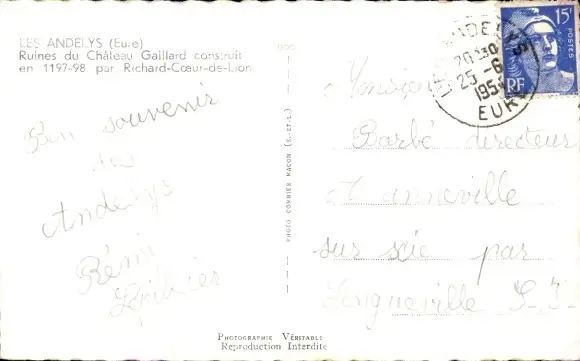 LES ANDELYS (Eure)
Ruines du Château Gaillard construit
en 1197-98 par Richard-Cœur-de-Lion
Bon souvenir
des
Andelys
Rémi
PHOTO COMBIER MACON (S.-ET-L.)
PHOTOGRAPHIE VÉRITABLE
Reproduction Interdite
15F
POSTES
RF
25-6
EURE
Monsieur
Barbé directeur
à anneville
sur scie par
Longueville S-I-